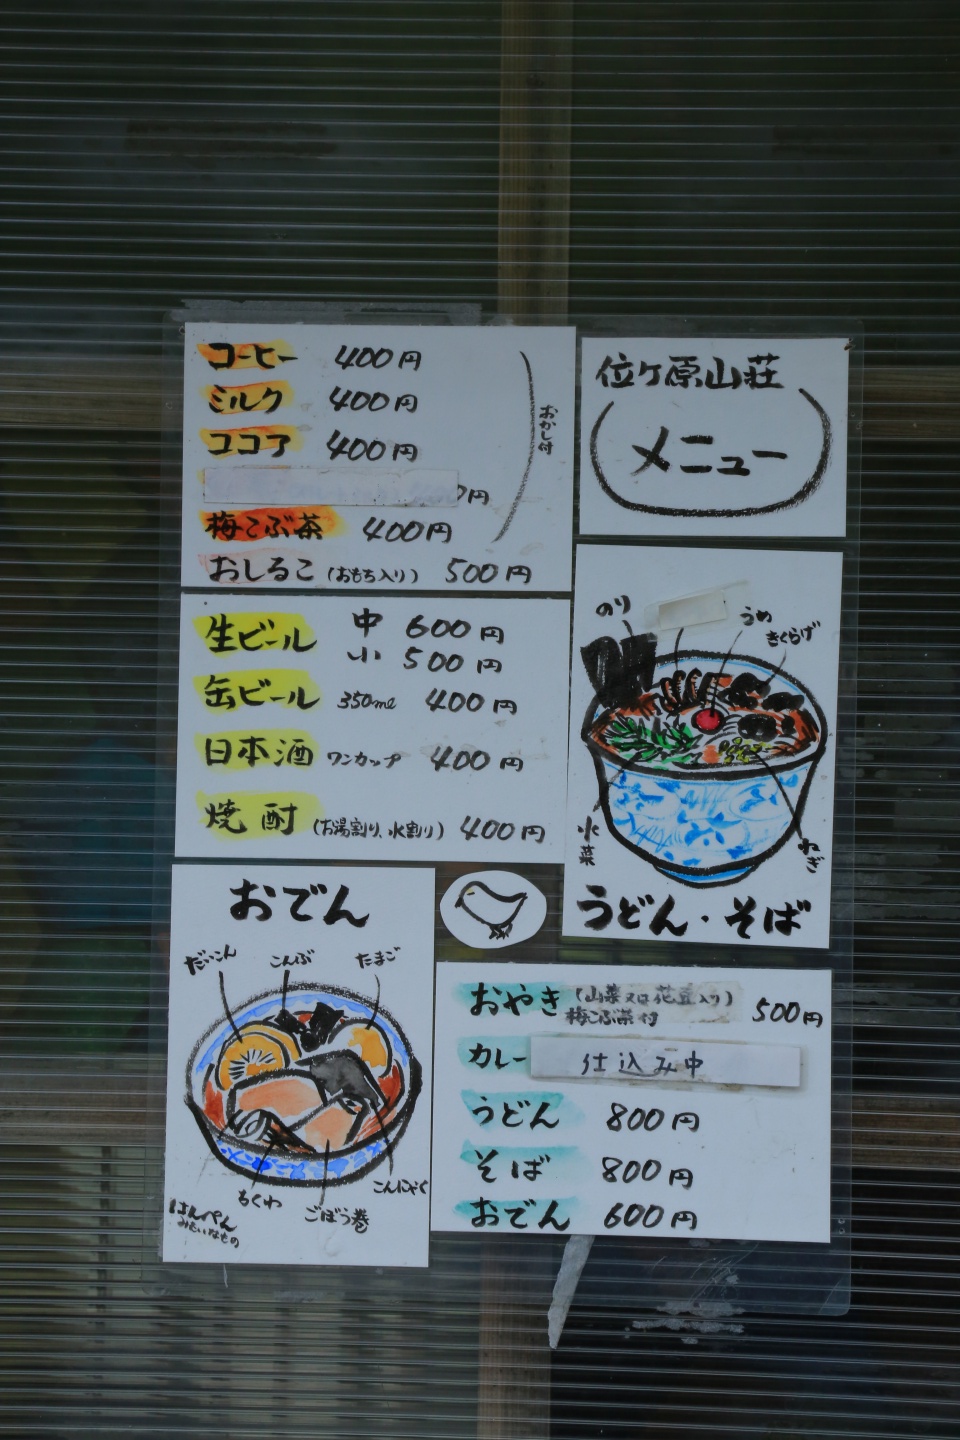 位ヶ原山荘
メニュー
コーヒー 400円
ミルク 400円
ココア 400円
0円
梅こぶ茶 400円
おかし付
おしるこ (おもち入り) 500円
生ビール 中 600円
小 500円
缶ビール 350ml 400円
日本酒 ワンカップ 400円
焼酎 (お湯割り、水割り) 400円
のり
うめ
きくらげ
水菜
ねぎ
うどん・そば
おでん
だいこん
こんぶ
たまご
はんぺん
みたいなもの
ちくわ
ごぼう巻
こんにゃく
おやき (山菜又は花豆入り) 500円
梅こぶ茶付
カレー 仕込み中
うどん 800円
そば 800円
おでん 600円